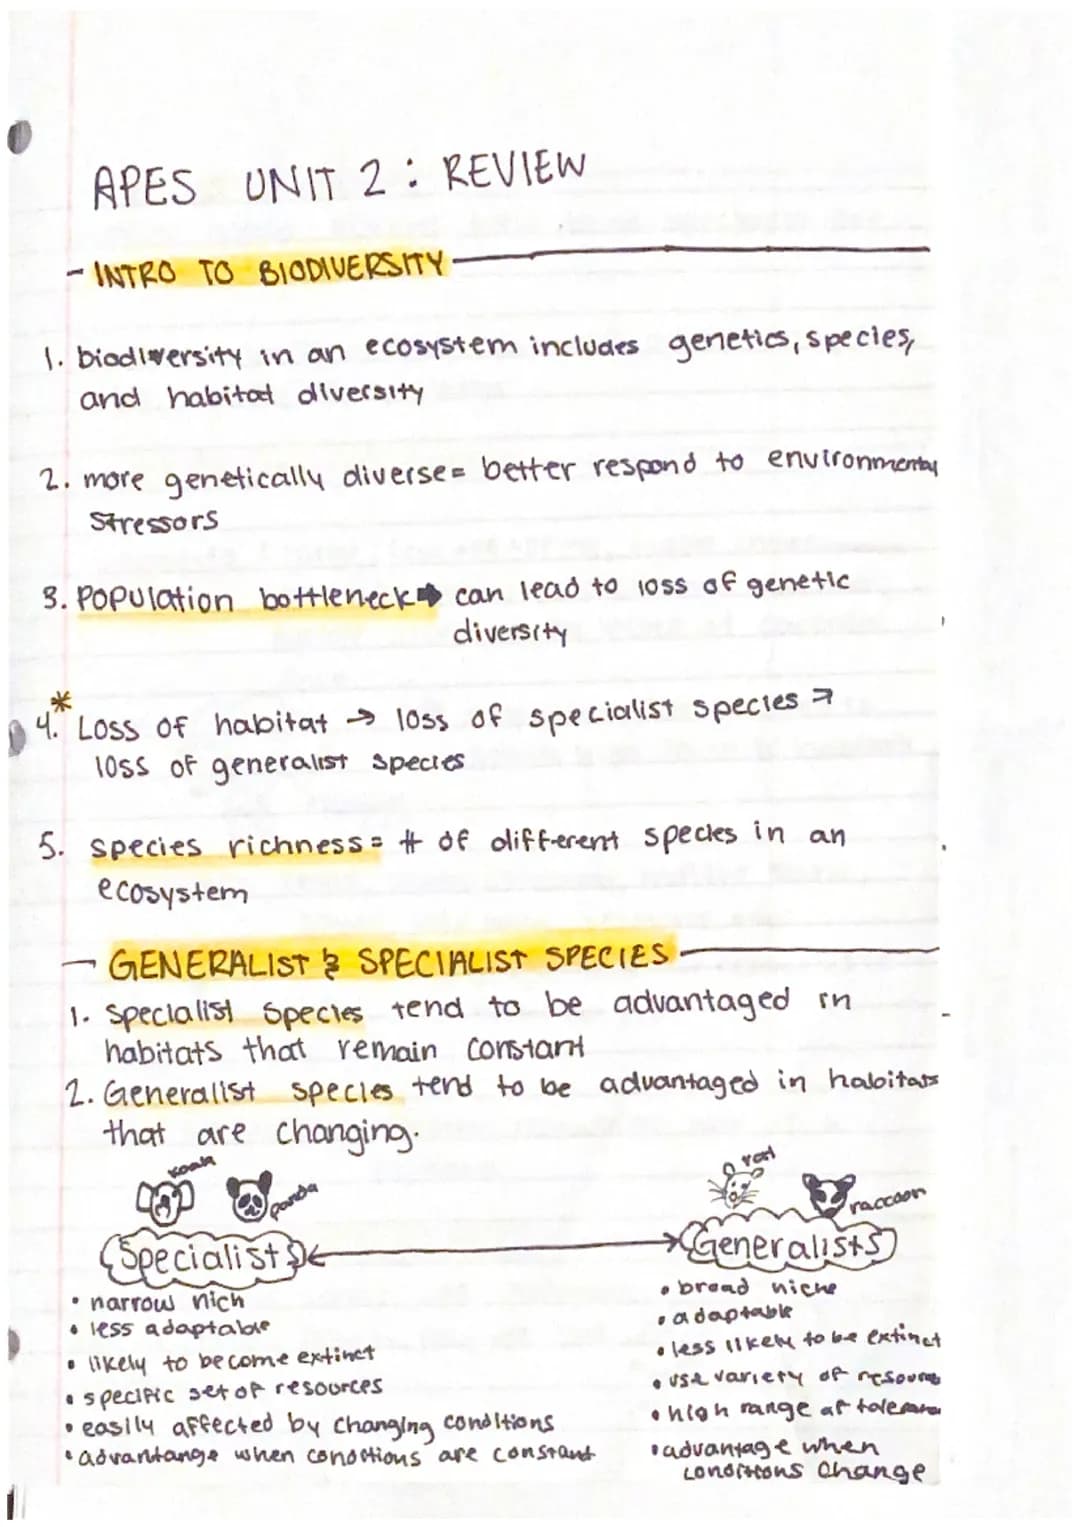 APES UNIT 2: REVIEW
- INTRO TO BIODIVERSITY
1. biodiversity in an ecosystem includes genetics, species,
and habitat diversity
2. more genetically diverse = better respond to environmental
stressors
3. Population bottleneck → can lead to loss of genetic
diversity
*
4. Loss of habitat → loss of specialist species →
loss of generalist species
5. species richness = # of different species in an
ecosystem
- GENERALIST & SPECIALIST SPECIES
1. Specialist Species tend to be advantaged in
habitats that remain constant
2. Generalist species tend to be advantaged in habitats
that are changing.
koala
panda
rat
raccoon
Specialists
Generalists
• narrow nich
• less adaptable
• likely to become extinct
• specific set of resources
• easily affected by changing conditions
• advantange when conditions are constant
• broad niche
• adaptable
• less likely to be extinct
• use variety of resources
• high range of tolerance
• advantage when
conditions change